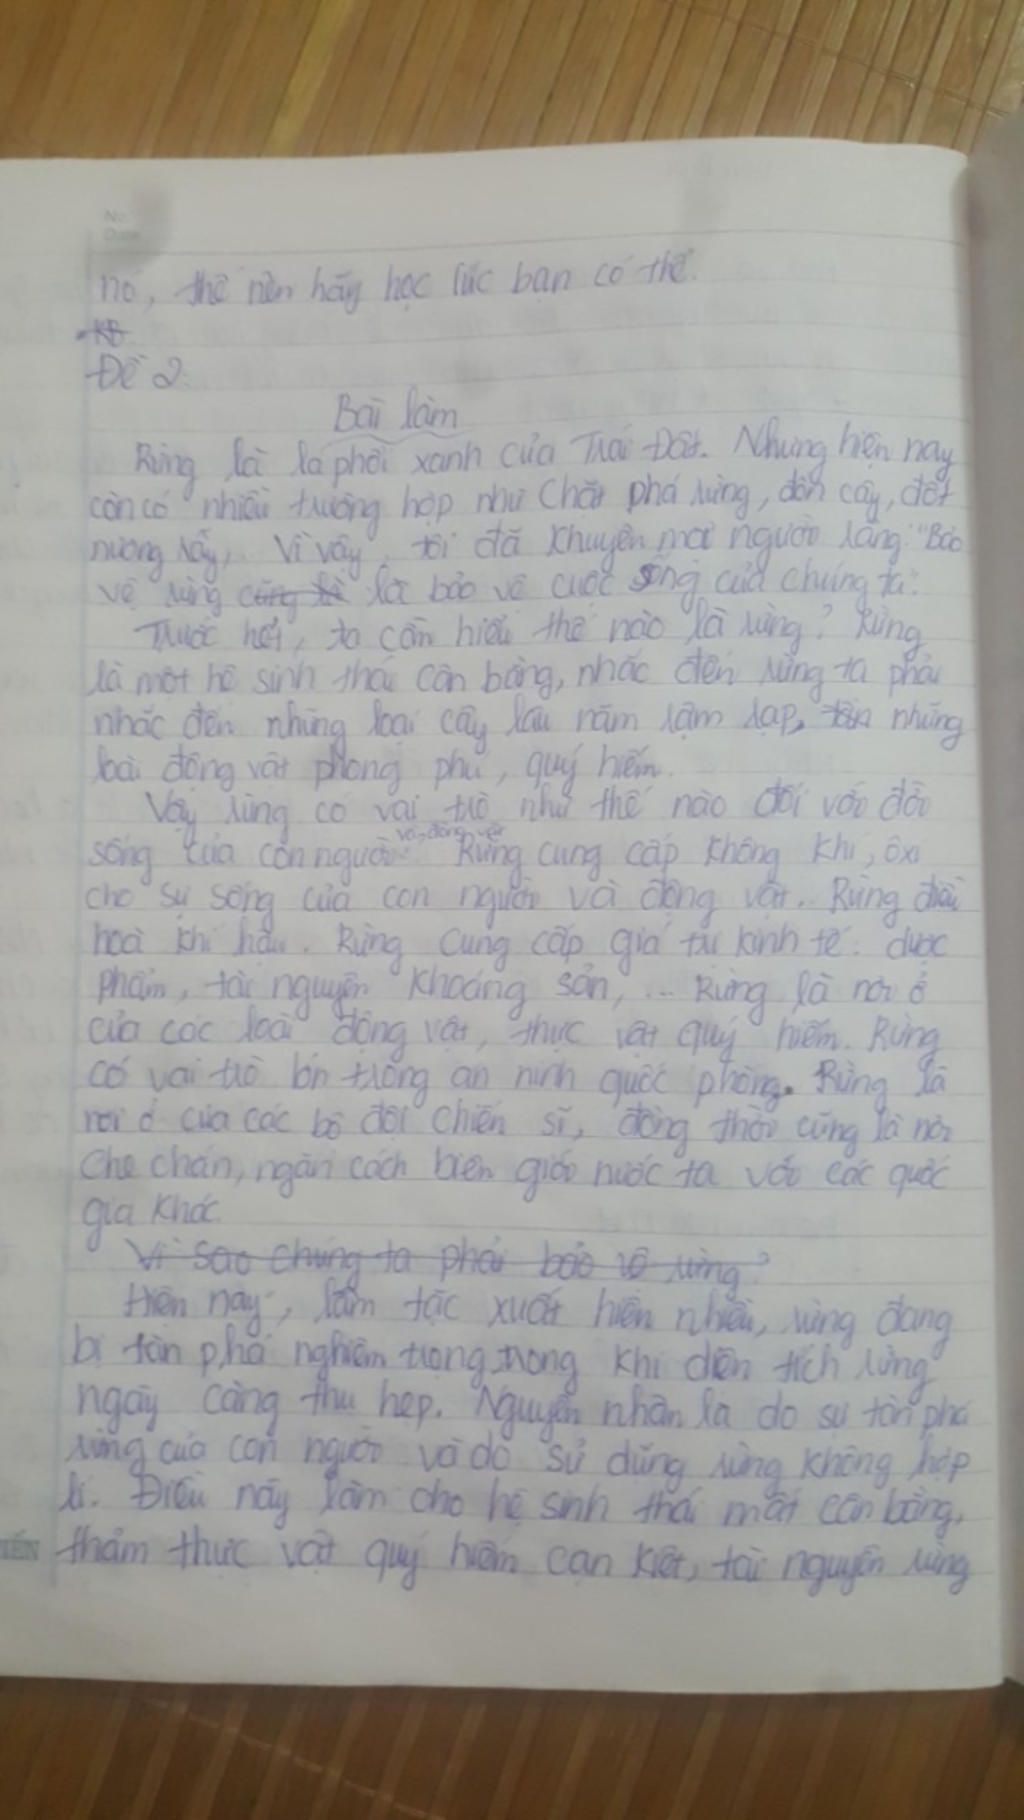 No.
Date
nó, thế nên hãy học lúc bạn có thể.
KB
Đề 2:
Bài làm
Rừng là lá phổi xanh của Trái Đất. Nhưng hiện nay
còn có nhiều trường hợp như chặt phá rừng, đốn cây, đốt
nương rẫy, Vì vậy, tôi đã khuyên mọi người rằng: "Bảo
vệ rừng cũng là là bảo vệ cuộc sống của chúng ta".
Trước hết, ta cần hiểu thế nào là rừng? Rừng
là một hệ sinh thái cân bằng, nhắc đến rừng ta phải
nhắc đến những loại cây lâu năm rậm rạp, những
loài động vật phong phú, quý hiếm.
Vậy rừng có vai trò như thế nào đối với đời
sống của con người và động vật? Rừng cung cấp không khí, ôxi
cho sự sống của con người và động vật. Rừng điều
hoà khí hậu. Rừng cung cấp giá trị kinh tế: dược
phẩm, tài nguyên khoáng sản, ... Rừng là nơi ở
của các loài động vật, thực vật quý hiếm. Rừng
có vai trò lớn trong an ninh quốc phòng. Rừng là
nơi ở của các bộ đội chiến sĩ, đồng thời cũng là nơi
che chắn, ngăn cách biên giới nước ta với các quốc
gia khác.
Vì sao chúng ta phải bảo vệ rừng?
Hiện nay, lâm tặc xuất hiện nhiều, rừng đang
bị tàn phá nghiêm trọng trong khi diện tích rừng
ngày càng thu hẹp. Nguyên nhân là do sự tàn phá
rừng của con người và do sử dũng rừng không hợp
lí. Điều này làm cho hệ sinh thái mất cân bằng,
thảm thực vật quý hiếm cạn kiệt, tài nguyên rừng